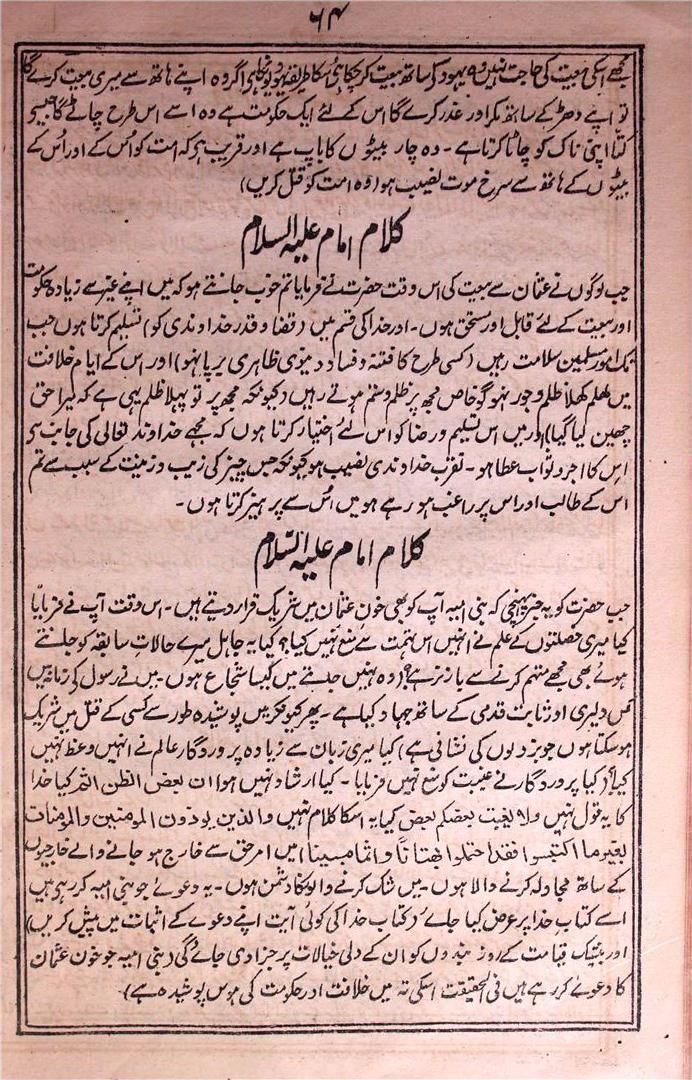 ۶۴
مجھے اسکی بیعت کی حاجت نہیں وہ یہود کی ساتھ بیعت کر چکا ہی اسکا طریقہ یہودیونکا ہی اگر وہ اپنے ہاتھ سے میری بیعت کرے گا
تو اپنے دھڑ کے ساتھ مکر اور غدر کرے گا اس کے لئے ایک حکومت ہے وہ اسے اس طرح چاٹے گا جیسی
کتّا اپنی ناک کو چاٹا کرتا ہے ۔ وہ چار بیٹوں کا باپ ہے اور قریب ہی کہ امت کو اُس کے اور اُس کے
بیٹوں کے ہاتھ سے سرخ موت نصیب ہو (وہ امت کو قتل کریں)
کلام امام علیہ السلام
جب لوگوں نے عثمان سے بیعت کی اس وقت حضرت نے فرمایا تم خوب جانتے ہو کہ میں اپنے غیر سے زیادہ حکومت
اور بیعت کے لئے قابل اور مستحق ہوں ۔ اور خدا کی قسم میں (قضا و قدر خداوندی کو) تسلیم کرتا ہوں جب
تک امور مسلمین سلامت رہیں (کسی طرح کا فتنہ و فساد دنیوی ظاہری برپا نہو) اور اس کے ایام خلافت
میں کھلم کھلا ظلم و جور نہو گو خاص مجھ پر ظلم و ستم ہوتے رہیں (کیونکہ مجھ پر تو پہلا ظلم یہی ہے کہ میرا حق
چھین کیا گیا) اور میں اس تسلیم و رضا کو اس لئے اختیار کرتا ہوں کہ مجھے خداوند تعالی کی جانب سی
اس کا اجر و ثواب عطا ہو ۔ تقرب خداوندی نصیب ہو کیونکہ جس چیز کی زیب و زینت کے سبب سے تم
اس کے طالب اور اس پر راغب ہو رہے ہو میں اُس سے پرہیز کرتا ہوں ۔
کلام امام علیہ السّلام
جب حضرت کو یہ خبر پہنچی کہ بنی امیہ آپ کو بھی خون عثمان میں شریک قرار دیتے ہیں ۔ اس وقت آپ نے فرمایا
کیا میری خصلتوں کے علم نے انہیں اس تہمت سے منع نہیں کیا؟ کیا یہ جاہل میرے حالات سابقہ کو جانتے
ہوئے بھی مجھے متہم کرنے سے باز نرہے؟ (وہ نہیں جانتے میں کیسا شجاع ہوں ۔ میں نے رسول کی زمانہ میں
کس دلیری اور ثابت قدمی کے ساتھ جہاد کیا ہے ۔ پھر کیونکر میں پوشیدہ طور سے کسی کے قتل میں شریک
ہو سکتا ہوں جو بزدلوں کی نشانی ہے) کیا میری زبان سے زیادہ پروردگار عالم نے انہیں وعظ نہیں
کیا؟ (کیا پروردگار نے غیبت کو منع نہیں فرمایا ۔ کیا ارشاد نہیں ہوا ان بعض الظن اثم کیا خدا
کا یہ قول نہیں ولا یغتب بعضکم بعض کیا یہ اسکا کلام نہیں والذین یوذون المومنین والمومنات
بغیر ما اکتسبوا فقد احتملوا بھتانًا واثما مبینا) میں امر حق سے خارج ہو جانے والے خارجیوں
کے ساتھ مجادلہ کرنے والا ہوں ۔ میں شک کرنے والونکا دشمن ہوں ۔ یہ دعوےٰ جو بنی امیہ کر رہی ہیں
اسے کتاب خدا پر عرض کیا جائے (کتاب خدا کی کوئی آیت اپنے دعوے کے اثبات میں پیش کریں)
اور بیشک قیامت کے روز بندوں کو ان کے دلی خیالات پر جزا دی جائے گی (بنی امیہ جو خون عثمان
کا دعویٰ کر رہے ہیں فی الحقیقت اسکی تہ میں خلافت اور حکومت کی ہوس پوشیدہ ہے)